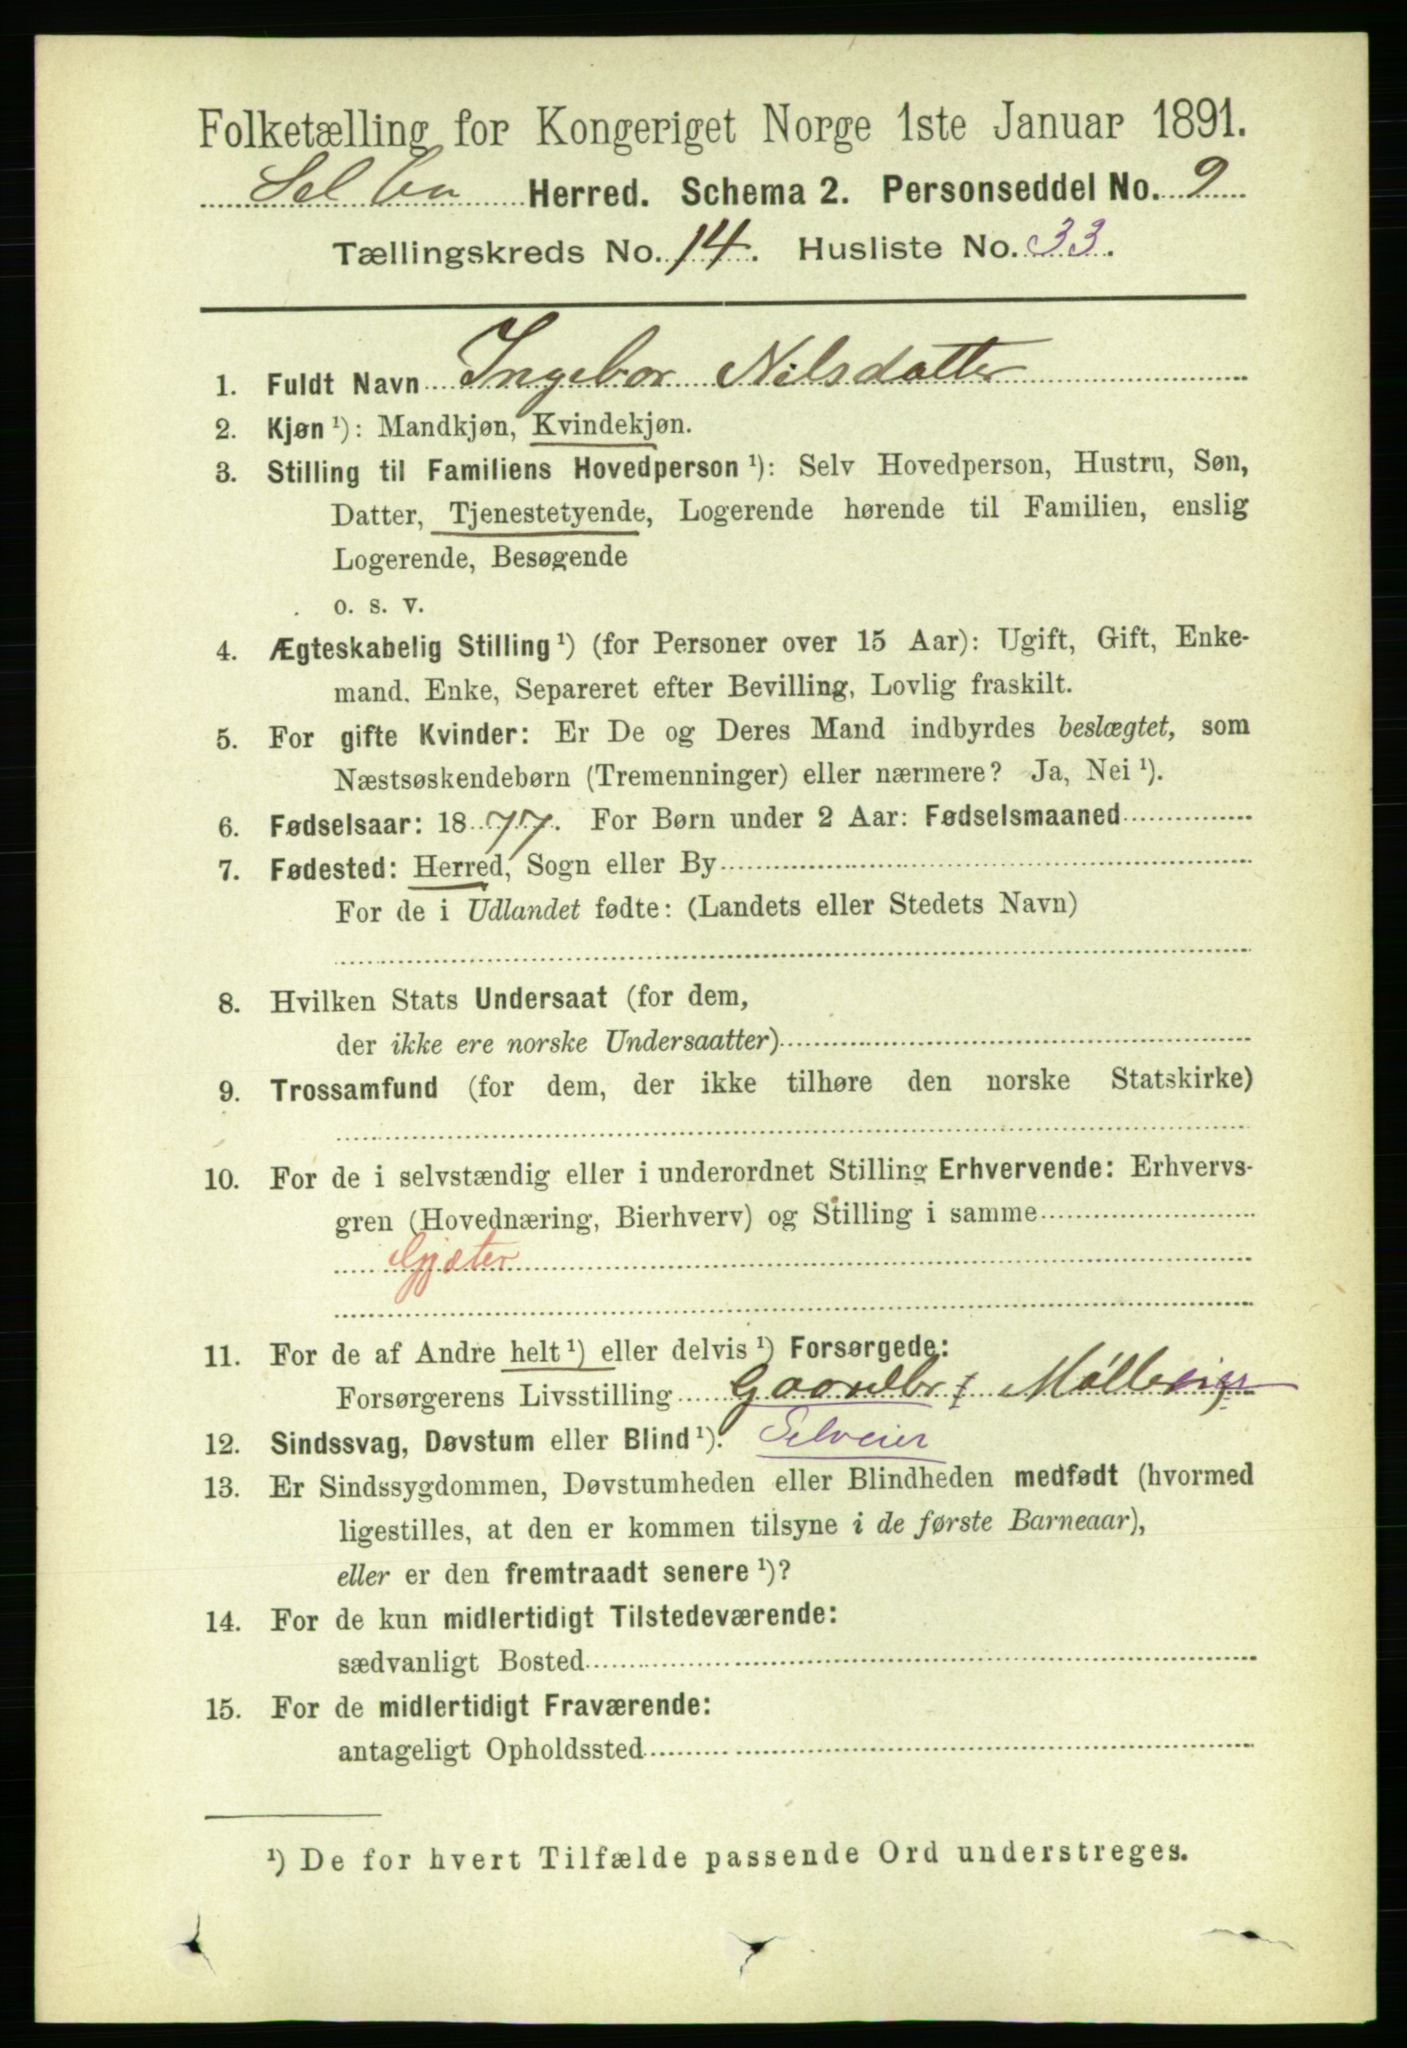 Folketælling for Kongeriget Norge 1ste Januar 1891.
Selbu Herred. Schema 2. Personseddel No. 9
Tællingskreds No. 14. Husliste No. 33.
1. Fuldt Navn Ingebor Nilsdatter
2. Kjøn ¹): Mandkjøn, Kvindekjøn.
3. Stilling til Familiens Hovedperson ¹): Selv Hovedperson, Hustru, Søn,
Datter, Tjenestetyende, Logerende hørende til Familien, enslig
Logerende, Besøgende
o. s. v.
4. Ægteskabelig Stilling ¹) (for Personer over 15 Aar): Ugift, Gift, Enke-
mand. Enke, Separeret efter Bevilling, Lovlig fraskilt.
5. For gifte Kvinder: Er De og Deres Mand indbyrdes beslægtet, som
Næstsøskendebørn (Tremenninger) eller nærmere? Ja, Nei ¹).
6. Fødselsaar: 1877. For Børn under 2 Aar: Fødselsmaaned
7. Fødested: Herred, Sogn eller By
For de i Udlandet fødte: (Landets eller Stedets Navn)
8. Hvilken Stats Undersaat (for dem,
der ikke ere norske Undersaatter)
9. Trossamfund (for dem, der ikke tilhøre den norske Statskirke)
10. For de i selvstændig eller i underordnet Stilling Erhvervende: Erhvervs-
gren (Hovednæring, Bierhverv) og Stilling i samme
Gjæter
11. For de af Andre helt ¹) eller delvis ¹) Forsørgede:
Forsørgerens Livsstilling Gaardbr
12. Sindssvag, Døvstum eller Blind ¹). Selveier
13. Er Sindssygdommen, Døvstumheden eller Blindheden medfødt (hvormed
ligestilles, at den er kommen tilsyne i de første Barneaar),
eller er den fremtraadt senere ¹)?
14. For de kun midlertidigt Tilstedeværende:
sædvanligt Bosted
15. For de midlertidigt Fraværende:
antageligt Opholdssted
¹) De for hvert Tilfælde passende Ord understreges.